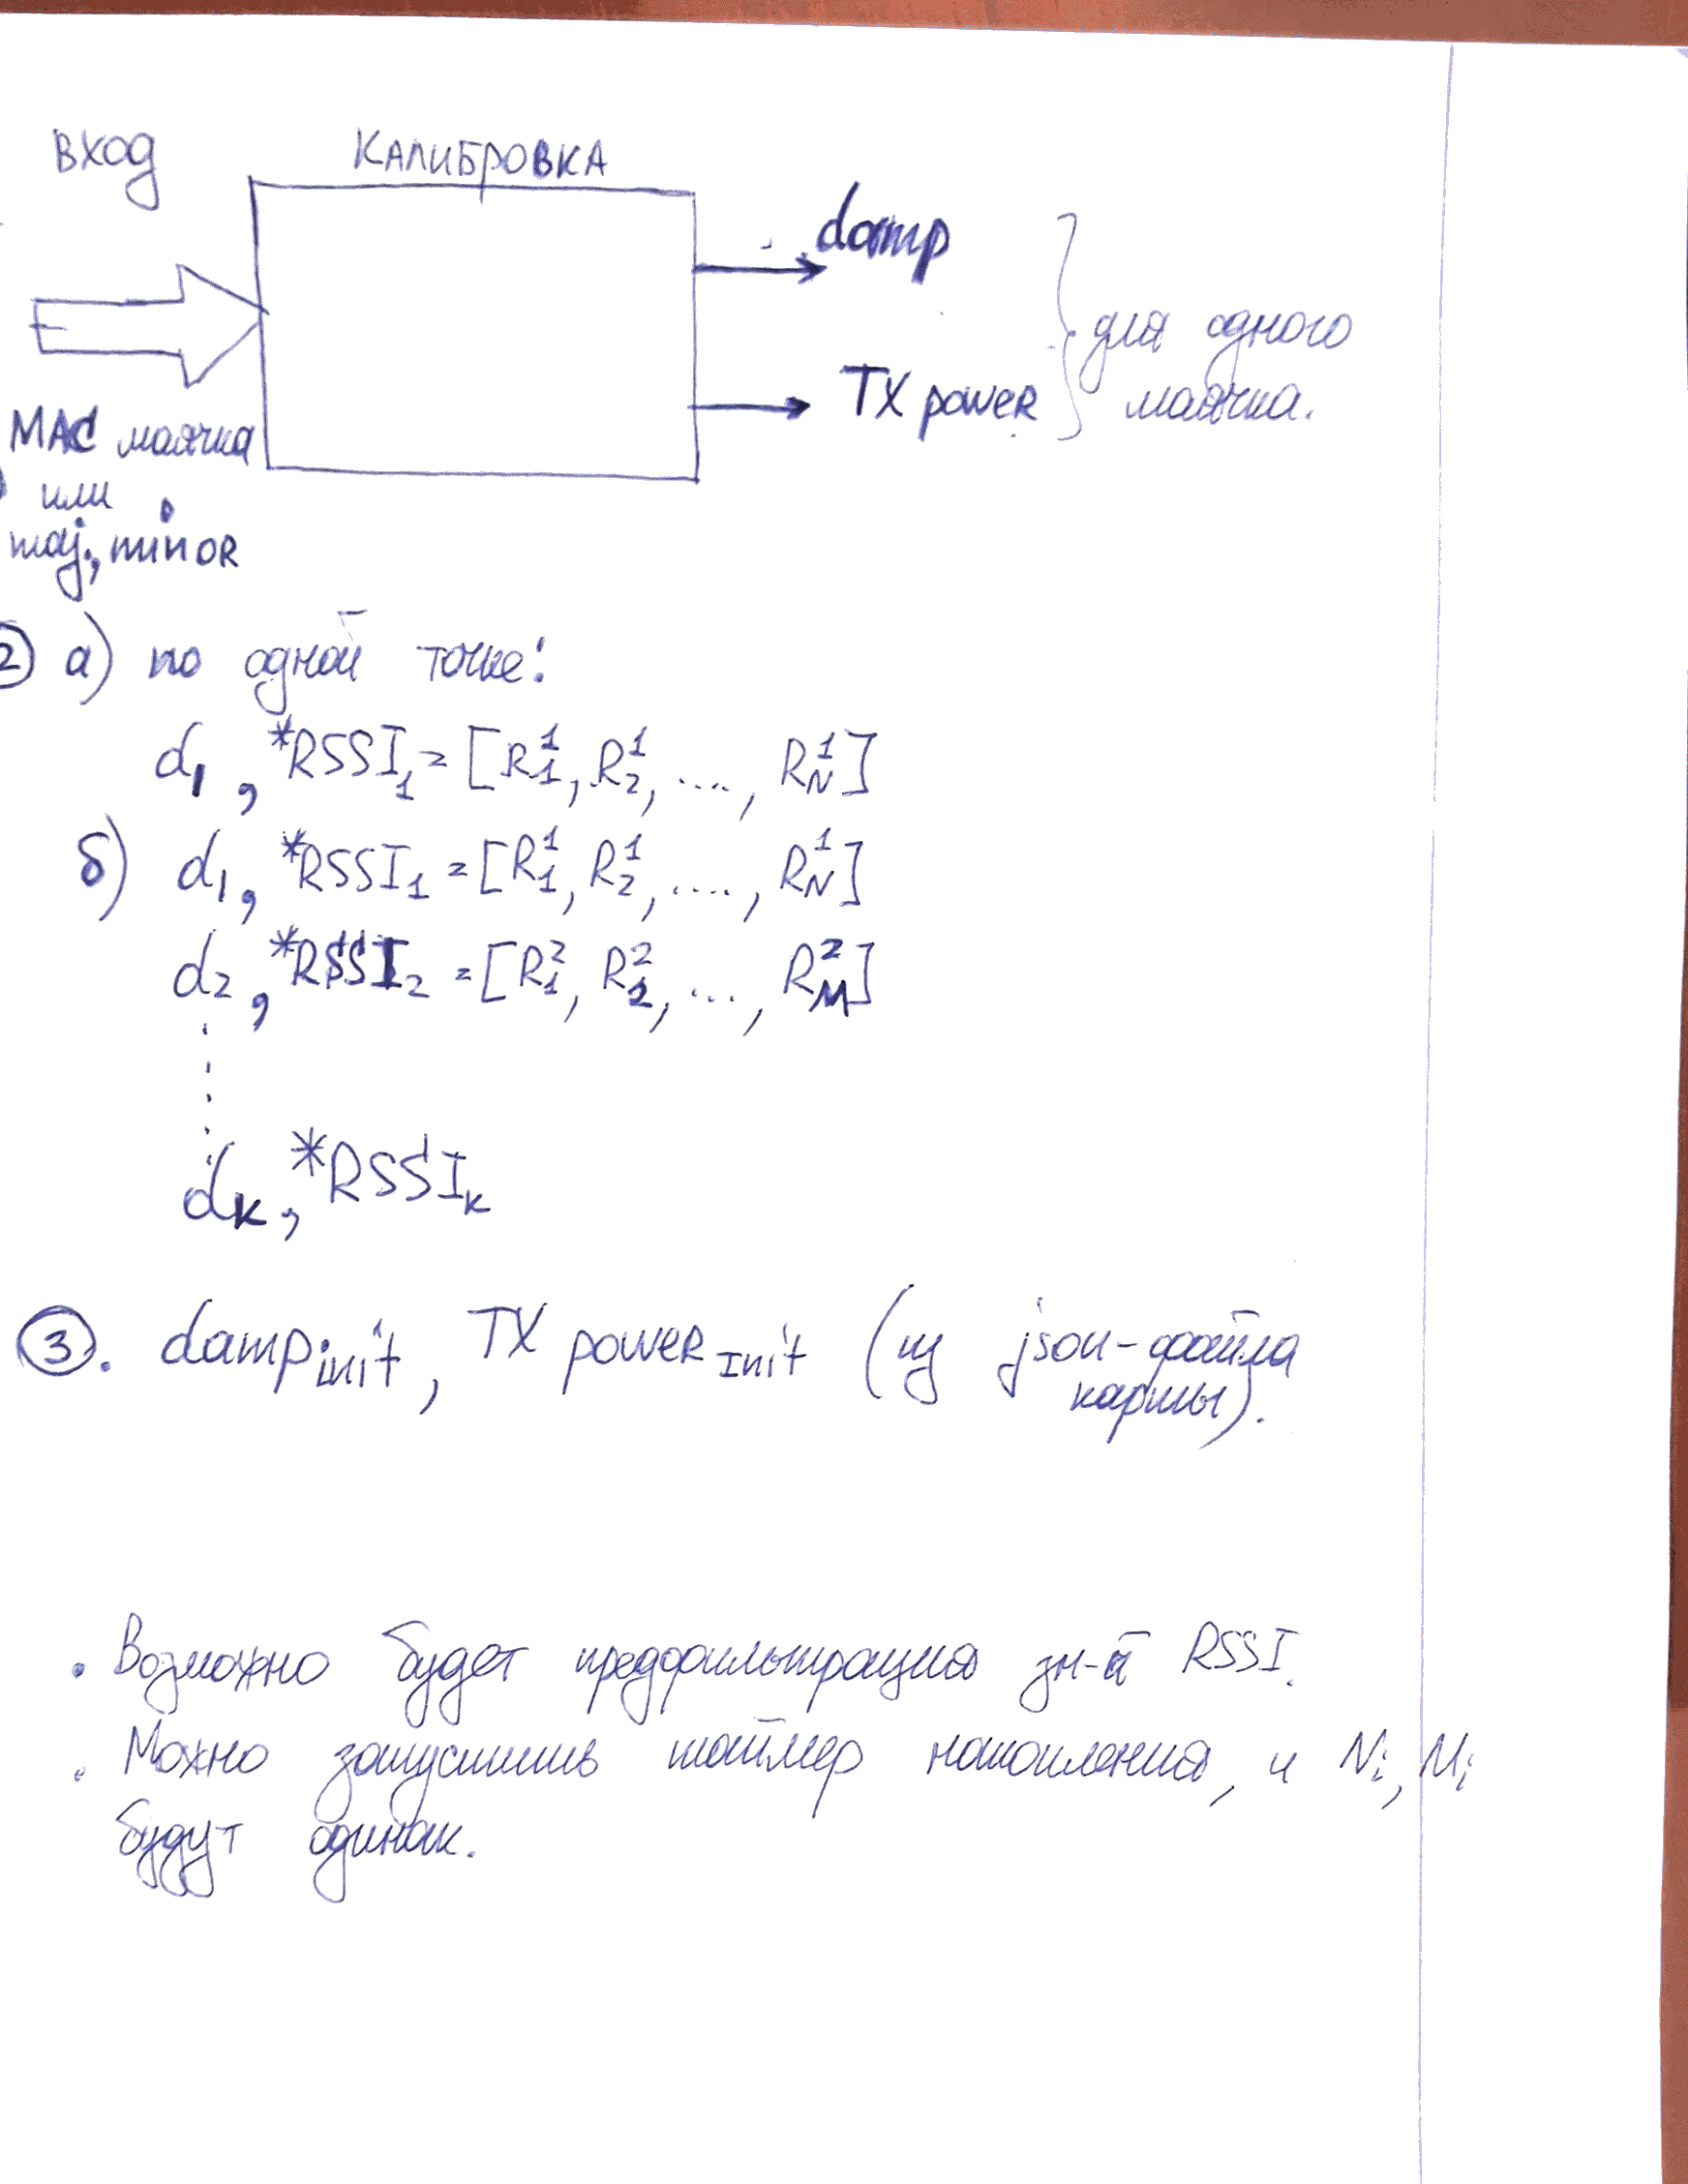 ВХОД
КАЛИБРОВКА
damp
TX power
для одного
маячка.
MAC маячка
или
maj., minor
2) а) по одной точке:
d₁, *RSSI₁ = [R₁¹, R₂¹, ...., R_N¹]
б) d₁, *RSSI₁ = [R₁¹, R₂¹, ...., R_N¹]
d₂, *RSSI₂ = [R₁², R₂², ..., R_M²]
d_k, *RSSI_k
3. damp_init, TX power_Init (из json-файла
карты).
• Возможно будет предфильтрация зн-й RSSI.
• Можно запустить таймер накопления, и N_i, M_i
будут одинак.